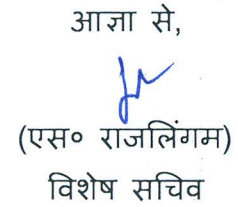 आज्ञा से,
(एस० राजलिंगम)
विशेष सचिव